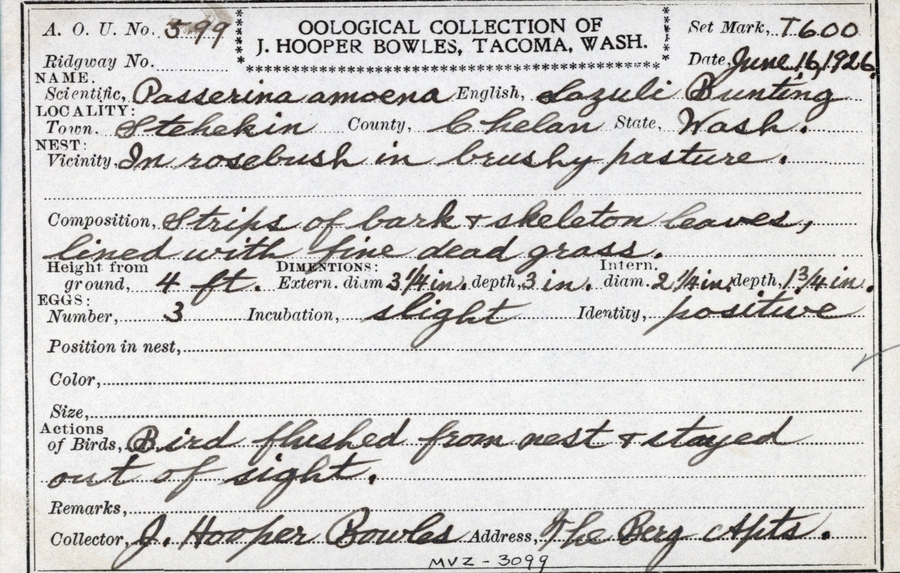 A. O. U. No. 599
OOLOGICAL COLLECTION OF
J. HOOPER BOWLES, TACOMA, WASH.
Set Mark, T600
Ridgway No.
Date, June 16, 1926.
NAME.
Scientific, Passerina amoena English, Lazuli Bunting
LOCALITY:
Town. Stehekin County, Chelan State, Wash.
NEST:
Vicinity, In rosebush in brushy pasture.
Composition, Strips of bark & skeleton leaves,
lined with fine dead grass.
Height from ground, 4 ft. DIMENTIONS: Extern. diam 3 1/4 in. depth, 3 in. Intern. diam. 2 1/4 in depth, 1 3/4 in.
EGGS:
Number, 3 Incubation, slight Identity, positive
Position in nest,
Color,
Size,
Actions of Birds, Bird flushed from nest & stayed
out of sight.
Remarks,
Collector, J. Hooper Bowles Address, The Berg Apts.
MVZ - 3099